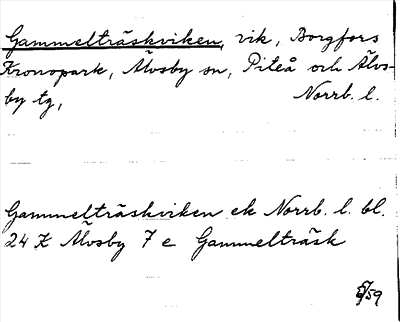 Gammelträskviken, vik, Borgfors
Kronopark, Älvsby sn, Piteå och Älvs-
by tg, Norrb. l.
Gammelträskviken ek Norrb. l. bl.
24 K Älvsby 7 e Gammelträsk
59